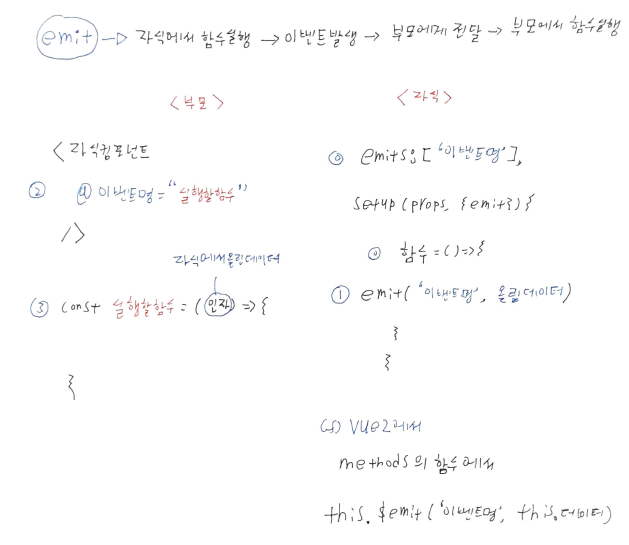 emit → 자식에서 함수실행 → 이벤트발생 → 부모에게 전달 → 부모에서 함수실행
<부모>
<자식컴포넌트
② @이벤트명="실행할함수"
/>
자식에서올린데이터
③ const 실행할함수 = (인자) => {
}
<자식>
⓪ emits: ['이벤트명'],
setup(props, {emit}) {
⓪ 함수 = () => {
① emit('이벤트명', 올릴데이터)
}
}
cf) Vue2에서
methods의 함수에서
this.$emit('이벤트명', this.데이터)